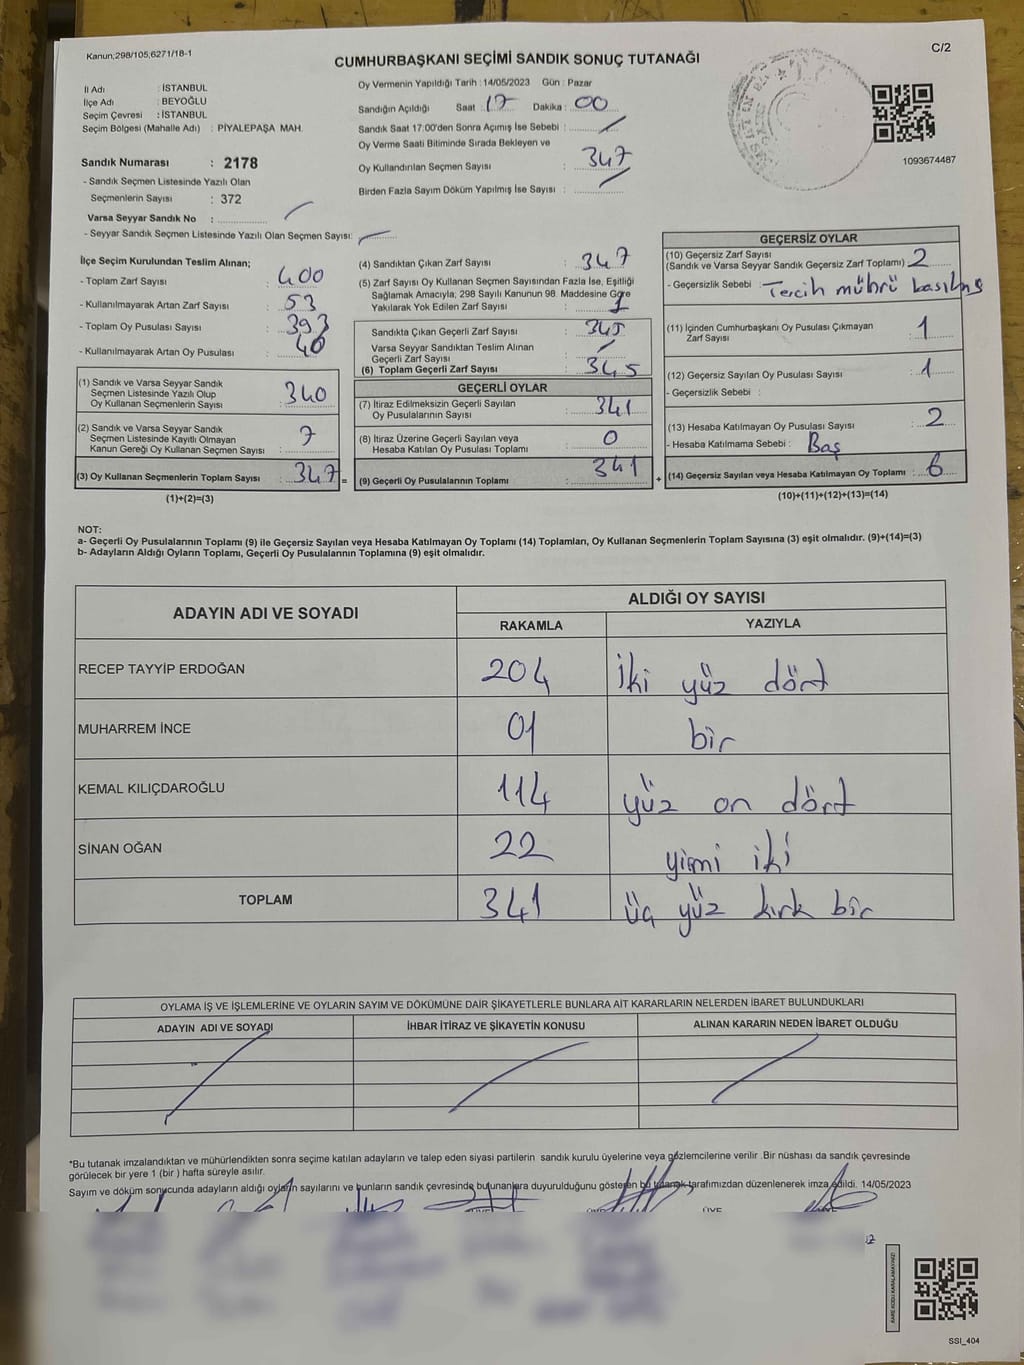 Kanun,298/105,6271/18-1
C/2
CUMHURBAŞKANI SEÇİMİ SANDIK SONUÇ TUTANAĞI
İl Adı : İSTANBUL
İlçe Adı : BEYOĞLU
Seçim Çevresi : İSTANBUL
Seçim Bölgesi (Mahalle Adı) : PİYALEPAŞA MAH.
Sandık Numarası : 2178
- Sandık Seçmen Listesinde Yazılı Olan
Seçmenlerin Sayısı : 372
Varsa Seyyar Sandık No :
- Seyyar Sandık Seçmen Listesinde Yazılı Olan Seçmen Sayısı:
Oy Vermenin Yapıldığı Tarih : 14/05/2023 Gün : Pazar
Sandığın Açıldığı Saat 17 Dakika : 00
Sandık Saat 17:00'den Sonra Açımış İse Sebebi :
Oy Verme Saati Bitiminde Sırada Bekleyen ve
Oy Kullandırılan Seçmen Sayısı : 347
Birden Fazla Sayım Döküm Yapılmış İse Sayısı :
1093674487
İlçe Seçim Kurulundan Teslim Alınan;
- Toplam Zarf Sayısı : 400
- Kullanılmayarak Artan Zarf Sayısı : 53
- Toplam Oy Pusulası Sayısı : 393
- Kullanılmayarak Artan Oy Pusulası : 40
(1) Sandık ve Varsa Seyyar Sandık
Seçmen Listesinde Yazılı Olup
Oy Kullanan Seçmenlerin Sayısı : 340
(2) Sandık ve Varsa Seyyar Sandık
Seçmen Listesinde Kayıtlı Olmayan
Kanun Gereği Oy Kullanan Seçmen Sayısı : 7
(3) Oy Kullanan Seçmenlerin Toplam Sayısı : 347 =
(1)+(2)=(3)
(4) Sandıktan Çıkan Zarf Sayısı : 347
(5) Zarf Sayısı Oy Kullanan Seçmen Sayısından Fazla İse, Eşitliği
Sağlamak Amacıyla; 298 Sayılı Kanunun 98. Maddesine Göre
Yakılarak Yok Edilen Zarf Sayısı :
Sandıkta Çıkan Geçerli Zarf Sayısı : 345
Varsa Seyyar Sandıktan Teslim Alınan
Geçerli Zarf Sayısı :
(6) Toplam Geçerli Zarf Sayısı : 345
GEÇERLİ OYLAR
(7) İtiraz Edilmeksizin Geçerli Sayılan
Oy Pusulalarının Sayısı : 341
(8) İtiraz Üzerine Geçerli Sayılan veya
Hesaba Katılan Oy Pusulası Toplamı : 0
(9) Geçerli Oy Pusulalarının Toplamı : 341 +
GEÇERSİZ OYLAR
(10) Geçersiz Zarf Sayısı
(Sandık ve Varsa Seyyar Sandık Geçersiz Zarf Toplamı) : 2
- Geçersizlik Sebebi : Tercih mührü basılmış
(11) İçinden Cumhurbaşkanı Oy Pusulası Çıkmayan
Zarf Sayısı : 1
(12) Geçersiz Sayılan Oy Pusulası Sayısı : 1
- Geçersizlik Sebebi :
(13) Hesaba Katılmayan Oy Pusulası Sayısı : 2
- Hesaba Katılmama Sebebi : Boş
(14) Geçersiz Sayılan veya Hesaba Katılmayan Oy Toplamı : 6
(10)+(11)+(12)+(13)=(14)
NOT:
a- Geçerli Oy Pusulalarının Toplamı (9) ile Geçersiz Sayılan veya Hesaba Katılmayan Oy Toplamı (14) Toplamları, Oy Kullanan Seçmenlerin Toplam Sayısına (3) eşit olmalıdır. (9)+(14)=(3)
b- Adayların Aldığı Oyların Toplamı, Geçerli Oy Pusulalarının Toplamına (9) eşit olmalıdır.
ADAYIN ADI VE SOYADI
ALDIĞI OY SAYISI
RAKAMLA YAZIYLA
RECEP TAYYİP ERDOĞAN 204 İki yüz dört
MUHARREM İNCE 01 bir
KEMAL KILIÇDAROĞLU 114 yüz on dört
SİNAN OĞAN 22 yirmi iki
TOPLAM 341 üç yüz kırk bir
OYLAMA İŞ VE İŞLEMLERİNE VE OYLARIN SAYIM VE DÖKÜMÜNE DAİR ŞİKAYETLERLE BUNLARA AİT KARARLARIN NELERDEN İBARET BULUNDUKLARI
ADAYIN ADI VE SOYADI İHBAR İTİRAZ VE ŞİKAYETİN KONUSU ALINAN KARARIN NEDEN İBARET OLDUĞU
*Bu tutanak imzalandıktan ve mühürlendikten sonra seçime katılan adayların ve talep eden siyasi partilerin sandık kurulu üyelerine veya gözlemcilerine verilir .Bir nüshası da sandık çevresinde
görülecek bir yere 1 (bir ) hafta süreyle asılır.
Sayım ve döküm sonucunda adayların aldığı oyların sayılarını ve bunların sandık çevresinde bulunanlara duyurulduğunu gösteren bu tutanak tarafımızdan düzenlenerek imza edildi. 14/05/2023
ÜYE
KARE KODU KARALAMAYINIZ!
SSI_404